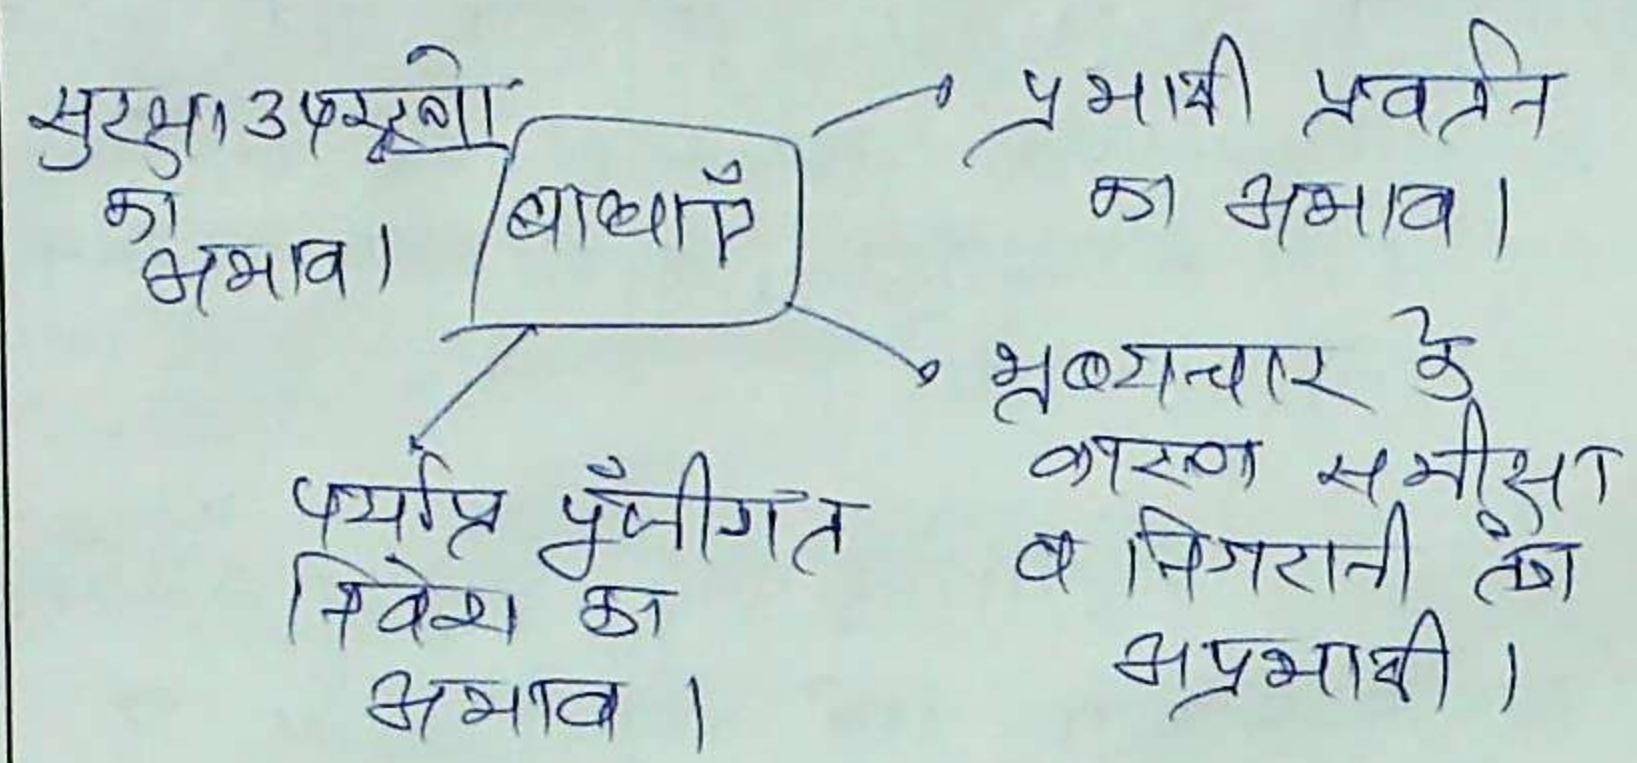 सुरक्षा उपकरणों
का
अभाव।
बाधाएँ
प्रभावी प्रवर्तन
का अभाव।
भ्रष्टाचार के
कारण समीक्षा
व निगरानी तंत्र
अप्रभावी।
पर्याप्त पूँजीगत
निवेश का
अभाव।